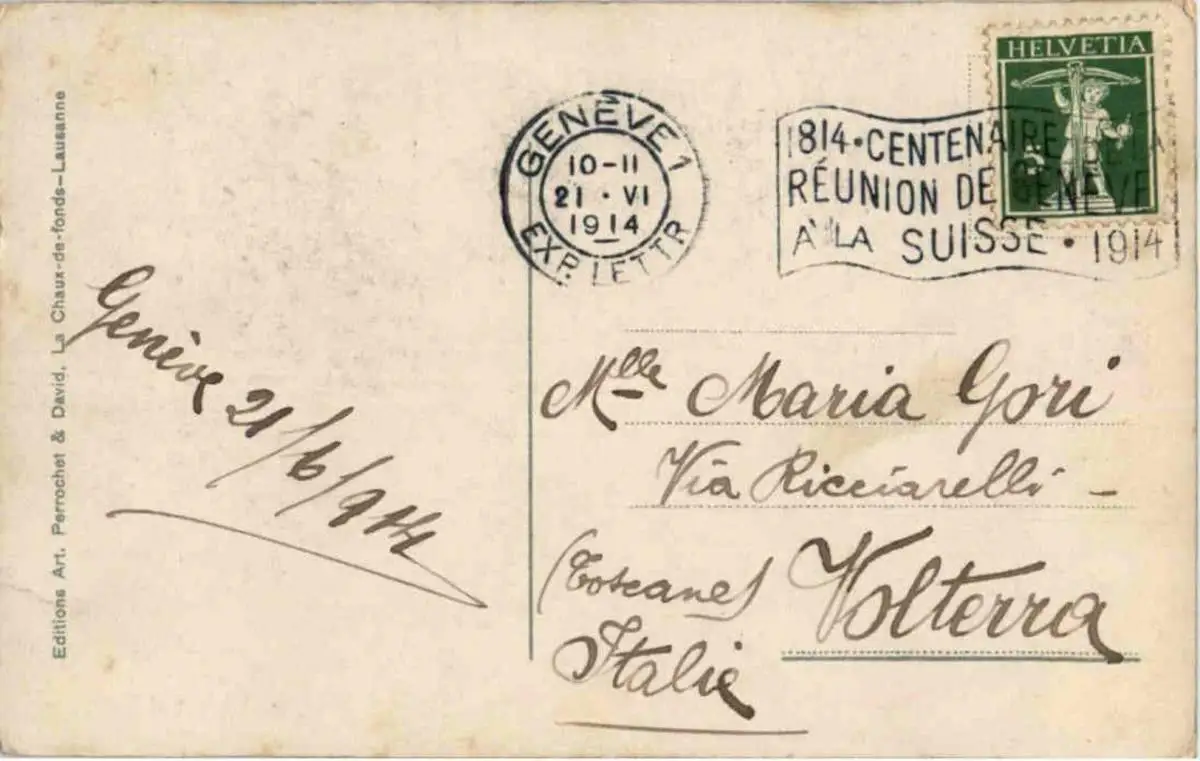 Editions Art. Perrochet & David, La Chaux-de-fonds-Lausanne
GENÈVE 1
10-11
21·VI
1914
EXP. LETTR
HELVETIA
1814·CENTENAIRE DE LA
RÉUNION DE GENÈVE
À LA SUISSE·1914
Genève 21/6/914
Mlle Maria Gori
Via Ricciarelli -
(Toscane) Volterra
Italie